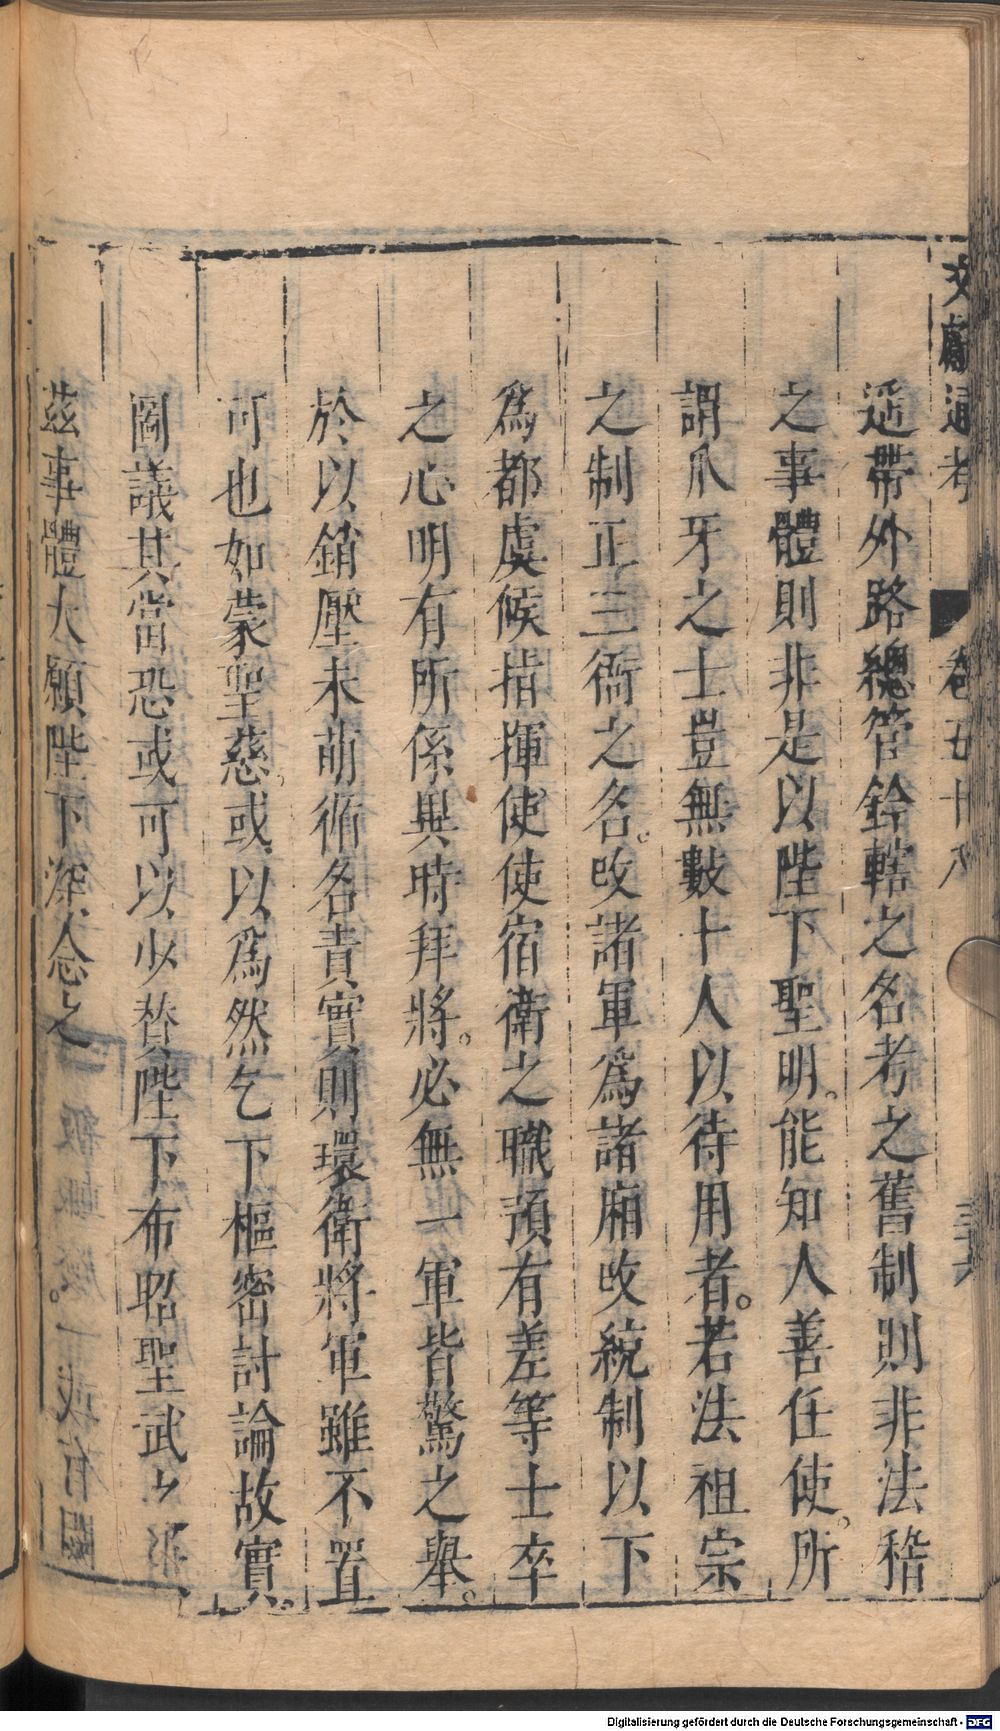 文獻通考 卷五十八 三六
遥帶外路總管鈐轄之名考之舊制則非法稽
之事體則非是以陛下聖明。能知人善任使。所
謂爪牙之士豈無數十人以待用者。若法祖宗
之制正三衙之名。改諸軍爲諸廂改統制以下
爲都虞候指揮使使宿衛之職預有差等士卒
之心明有所係異時拜將。必無一軍皆驚之舉。
於以銷壓未萌循名責實則環衛將軍雖不置
可也如蒙聖慈。或以爲然乞下樞密討論故實。
圖議其當恐或可以少賛陛下布昭聖武之
茲事體大願陛下深念之
Digitalisierung gefördert durch die Deutsche Forschungsgemeinschaft - DFG